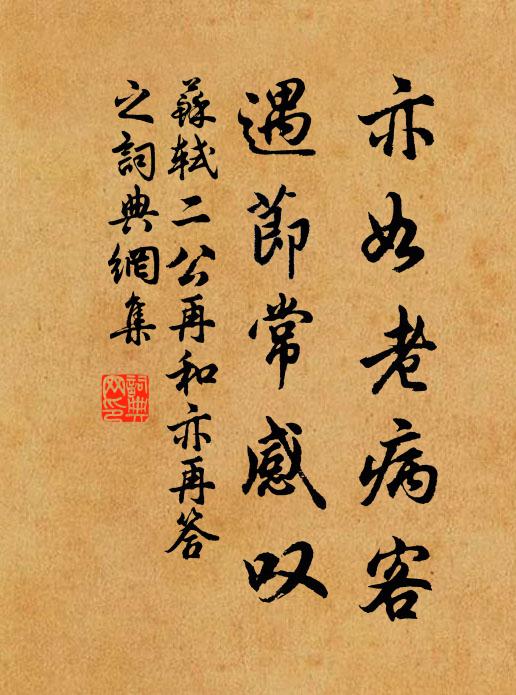 亦如老病客
遇節常感叹
蘇軾二公再和亦再答
之詞典網集
詞典
网印